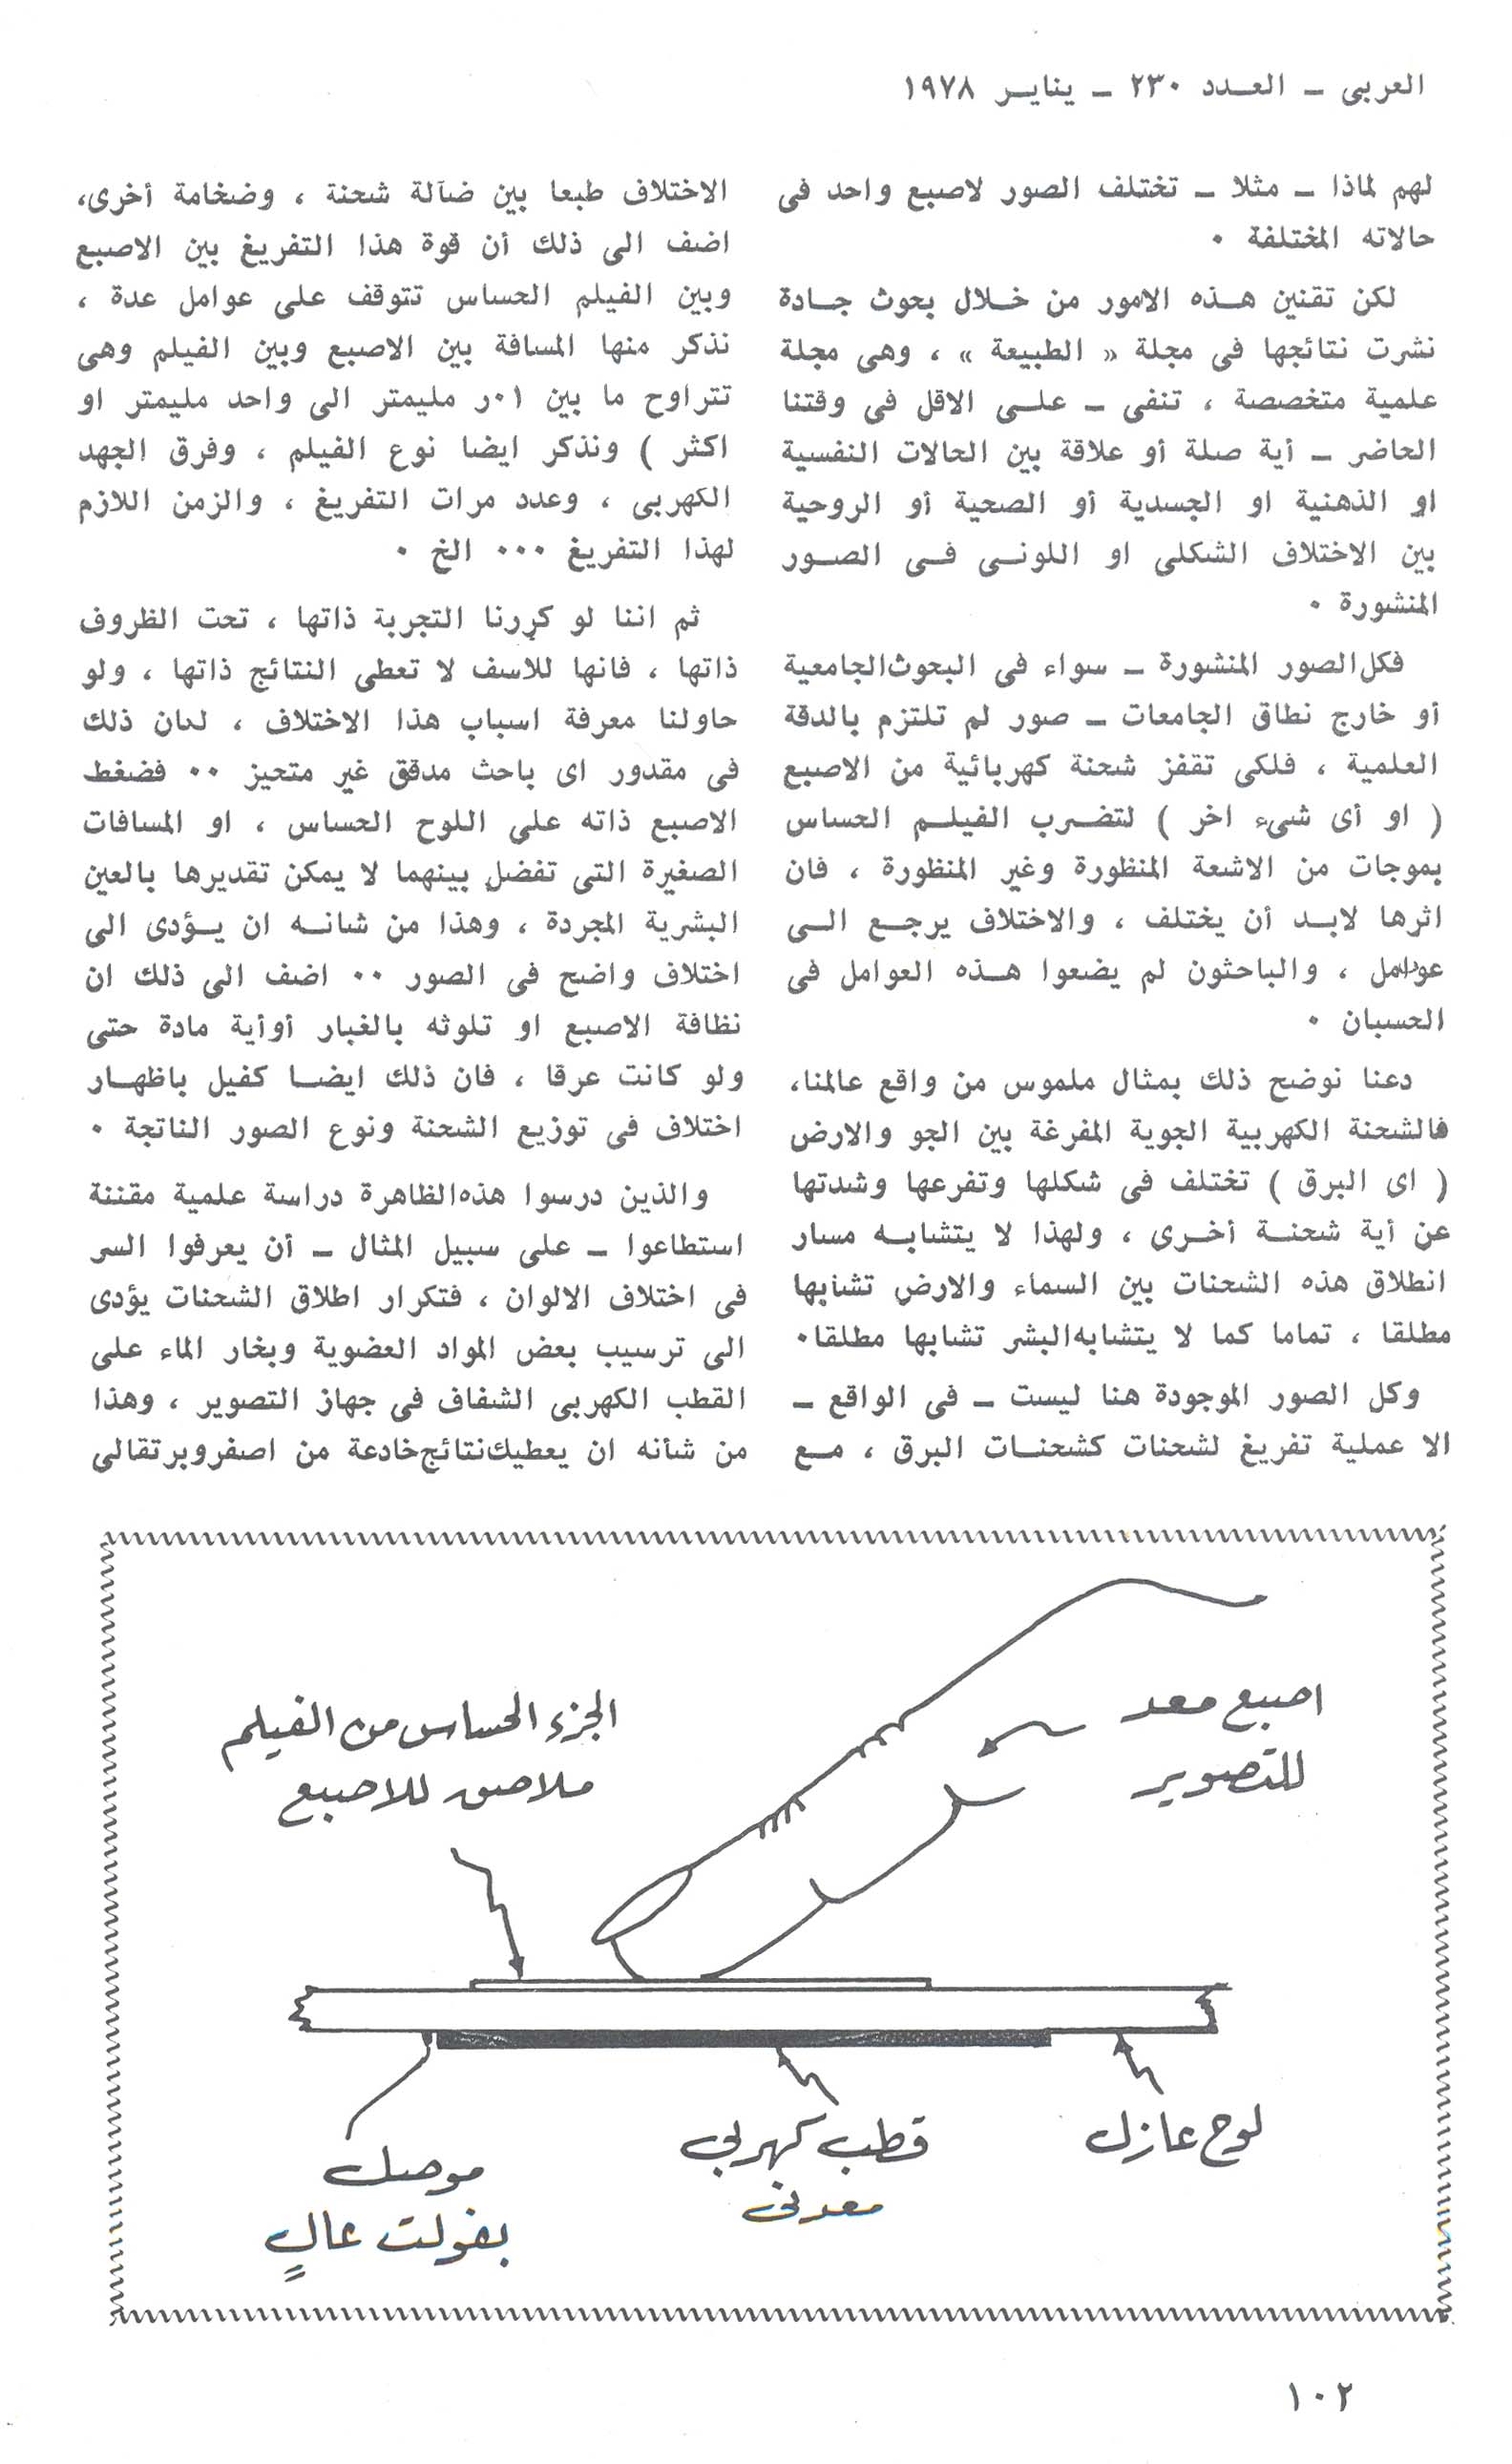 العربى – العدد ٢٣٠ – يناير ١٩٧٨
لهم لماذا – مثلا – تختلف الصور لاصبع واحد فى
حالاته المختلفة ٠
لكن تقنين هذه الامور من خلال بحوث جادة
نشرت نتائجها فى مجلة « الطبيعة » ، وهى مجلة
علمية متخصصة ، تنفى – على الاقل فى وقتنا
الحاضر – أية صلة أو علاقة بين الحالات النفسية
او الذهنية او الجسدية أو الصحية أو الروحية
بين الاختلاف الشكلى او اللونى فى الصور
المنشورة ٠
فكل الصور المنشورة – سواء فى البحوث الجامعية
أو خارج نطاق الجامعات – صور لم تلتزم بالدقة
العلمية ، فلكى تقفز شحنة كهربائية من الاصبع
( او أى شىء اخر ) لتضرب الفيلم الحساس
بموجات من الاشعة المنظورة وغير المنظورة ، فان
اثرها لابد أن يختلف ، والاختلاف يرجع الى
عوامل ، والباحثون لم يضعوا هذه العوامل فى
الحسبان ٠
دعنا نوضح ذلك بمثال ملموس من واقع عالمنا،
فالشحنة الكهربية الجوية المفرغة بين الجو والارض
( اى البرق ) تختلف فى شكلها وتفرعها وشدتها
عن أية شحنة أخرى ، ولهذا لا يتشابه مسار
انطلاق هذه الشحنات بين السماء والارض تشابها
مطلقا ، تماما كما لا يتشابه البشر تشابها مطلقا٠
وكل الصور الموجودة هنا ليست – فى الواقع –
الا عملية تفريغ لشحنات كشحنات البرق ، مع
الاختلاف طبعا بين ضآلة شحنة ، وضخامة أخرى،
اضف الى ذلك أن قوة هذا التفريغ بين الاصبع
وبين الفيلم الحساس تتوقف على عوامل عدة ،
نذكر منها المسافة بين الاصبع وبين الفيلم وهى
تتراوح ما بين ٠١ر مليمتر الى واحد مليمتر او
اكثر ) ونذكر ايضا نوع الفيلم ، وفرق الجهد
الكهربى ، وعدد مرات التفريغ ، والزمن اللازم
لهذا التفريغ ٠٠٠ الخ ٠
ثم اننا لو كررنا التجربة ذاتها ، تحت الظروف
ذاتها ، فانها للاسف لا تعطى النتائج ذاتها ، ولو
حاولنا معرفة اسباب هذا الاختلاف ، لكان ذلك
فى مقدور اى باحث مدقق غير متحيز ٠٠ فضغط
الاصبع ذاته على اللوح الحساس ، او المسافات
الصغيرة التى تفضل بينهما لا يمكن تقديرها بالعين
البشرية المجردة ، وهذا من شانه ان يؤدى الى
اختلاف واضح فى الصور ٠٠ اضف الى ذلك ان
نظافة الاصبع او تلوثه بالغبار أو أية مادة حتى
ولو كانت عرقا ، فان ذلك ايضا كفيل باظهار
اختلاف فى توزيع الشحنة ونوع الصور الناتجة ٠
والذين درسوا هذه الظاهرة دراسة علمية مقننة
استطاعوا – على سبيل المثال – أن يعرفوا السر
فى اختلاف الالوان ، فتكرار اطلاق الشحنات يؤدى
الى ترسيب بعض المواد العضوية وبخار الماء على
القطب الكهربى الشفاف فى جهاز التصوير ، وهذا
من شأنه ان يعطيك نتائج خادعة من اصفر وبرتقالى
اصبع معد
للتصوير
الجزء الحساس من الفيلم
ملاصق للاصبع
لوح عازل
قطب كهربي
معدنى
موصل
بفولت عالٍ
١٠٢